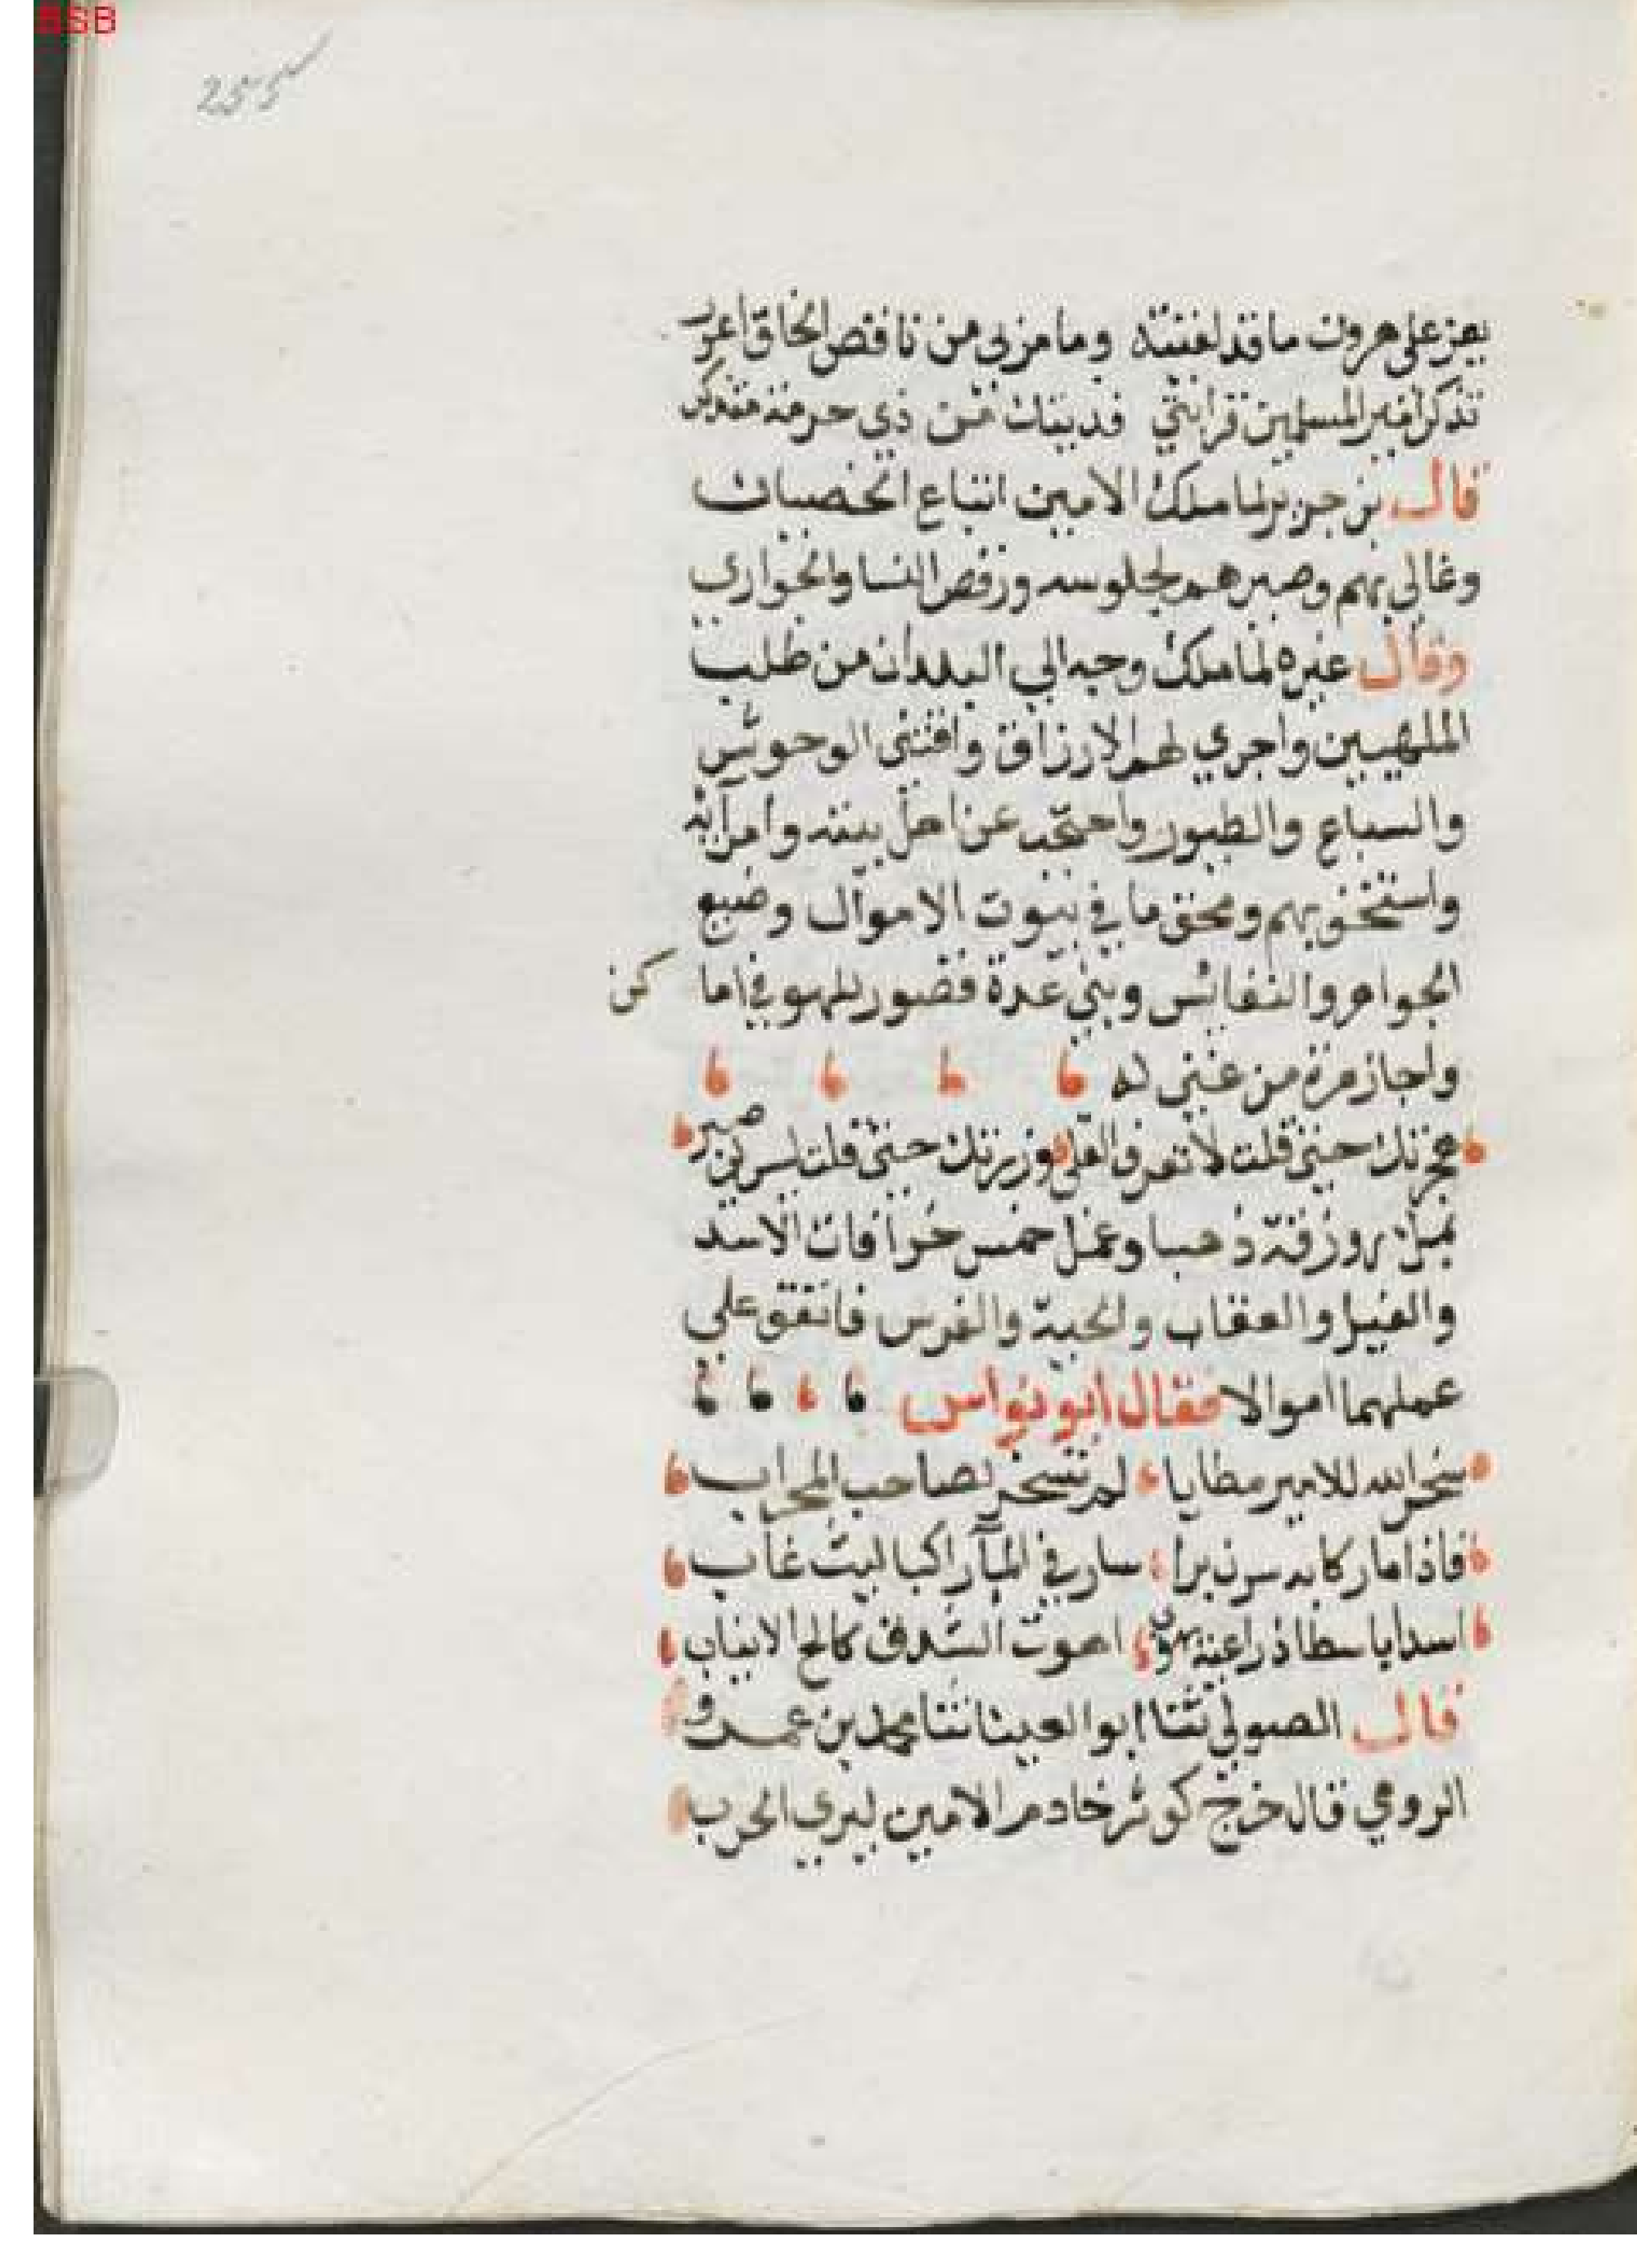 BSB
255
يعز على هرون ما قد لقيته وما مر بي من ناقص الخلق اعور
تذكر امير المسلمين قرابتي فديتك من ذي حرمة متذكر
قال بن جرير لما ملك الامين ابتاع الخصيان
وغالي بهم وصيرهم لخلوسه ورفض النسا والجواري
وقال غيره لما ملك وجه الي البلدان من طلب
الملهيين واجري لهم الارزاق واقتنى الوحوش
والسباع والطيور واحتجب عن اهل بيته وامرآيه
واستخف بهم ومحق ما في بيوت الاموال وضيع
الجواهر والنفائس وبني عدة قصور للهو في اما كن
واجاز مرة من غني له
هجرتك حتى قلت لا تعرف القلي وزرتك حتى قلت ليس له صبر
بمل زورقه ذهبا وعمل خمس حراقات الاسد
والفيل والعقاب والحية والفرس فانفق علي
عملهما اموالا فقال ابو نواس
سخر الله للامير مطايا لم تسخر لصاحب المحراب
فاذا ما ركابه سرن برا سار في المآ راكبا ليث غاب
اسدا باسطا ذراعيه يهوي اهوت الشدق كالح الانياب
قال الصولي ثنا ابو العينا ثنا محمد بن عمرو
الرومي قال خرج كوثر خادم الامين ليري الحرب